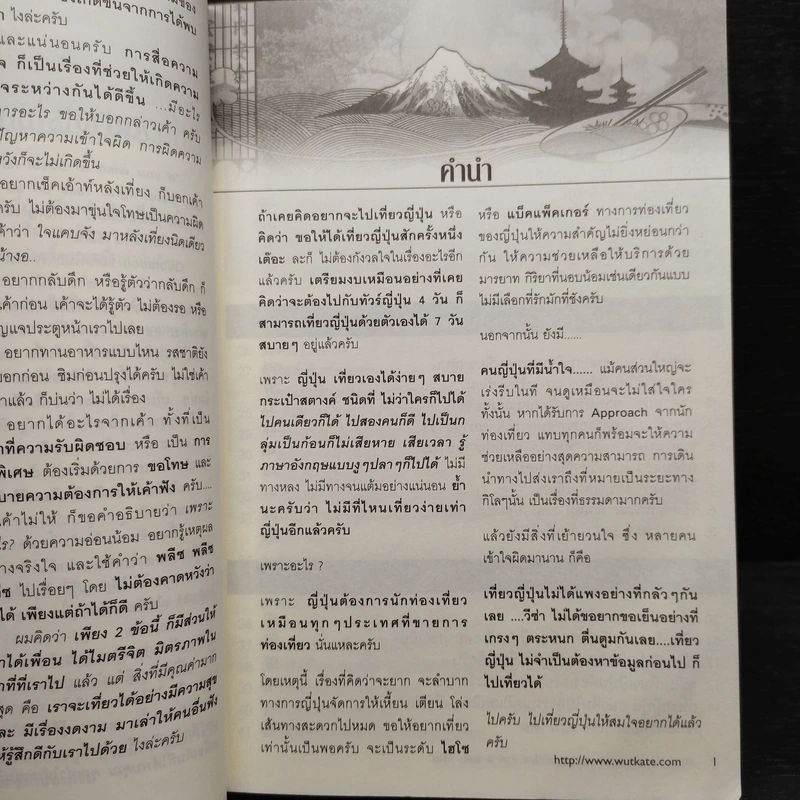 ไงล่ะครับ
และแน่นอนครับ การสื่อความ
ก็เป็นเรื่องที่ช่วยให้เกิดความ
ระหว่างกันได้ดีขึ้น ...มีอะไร
ขอให้บอกกล่าวเค้า ครับ
ปัญหาความเข้าใจผิด การผิดความ
ก็จะไม่เกิดขึ้น
อยากเช็คเอ้าท์หลังเที่ยง ก็บอกเค้า
ครับ ไม่ต้องมาขุ่นใจโทษเป็นความผิด
ใจแคบจัง มาหลังเที่ยงนิดเดียว
อยากกลับดึก หรือรู้ตัวว่ากลับดึก ก็
เค้าก่อน เค้าจะได้รู้ตัว ไม่ต้องรอ หรือ
ประตูหน้าเราไปเลย
อยากทานอาหารแบบไหน รสชาติยัง
บอกก่อน ชิมก่อนปรุงได้ครับ ไม่ใช่เค้า
แล้ว ก็บ่นว่า ไม่ได้เรื่อง
อยากได้อะไรจากเค้า ทั้งที่เป็น
ที่ความรับผิดชอบ หรือ เป็น การ
พิเศษ ต้องเริ่มด้วยการ ขอโทษ และ
ความต้องการให้เค้าฟัง ครับ....
เค้าไม่ให้ ก็ขอคำอธิบายว่า เพราะ
ด้วยความอ่อนน้อม อยากรู้เหตุผล
จริงใจ และใช้คำว่า พลีซ พลีซ
ไปเรื่อยๆ โดย ไม่ต้องคาดหวังว่า
ได้ เพียงแต่ถ้าได้ก็ดี ครับ
ผมคิดว่า เพียง 2 ข้อนี้ ก็มีส่วนให้
ได้เพื่อน ได้ไมตรีจิต มิตรภาพใน
ที่ที่เราไป แล้ว แต่ สิ่งที่มีคุณค่ามาก
คือ เราจะเที่ยวได้อย่างมีความสุข
และ มีเรื่องงดงาม มาเล่าให้คนอื่นฟัง
ให้รู้สึกดีกับเราไปด้วย ไงล่ะครับ
คำนำ
ถ้าเคยคิดอยากจะไปเที่ยวญี่ปุ่น หรือ
คิดว่า ขอให้ได้เที่ยวญี่ปุ่นสักครั้งหนึ่ง
เต๊อะ ละก็ ไม่ต้องกังวลใจในเรื่องอะไรอีก
แล้วครับ เตรียมงบเหมือนอย่างที่เคย
คิดว่าจะต้องไปกับทัวร์ญี่ปุ่น 4 วัน ก็
สามารถเที่ยวญี่ปุ่นด้วยตัวเองได้ 7 วัน
สบายๆ อยู่แล้วครับ
เพราะ ญี่ปุ่น เที่ยวเองได้ง่ายๆ สบาย
กระเป๋าสตางค์ ชนิดที่ ไม่ว่าใครก็ไปได้
ไปคนเดียวก็ได้ ไปสองคนก็ดี ไปเป็นก
ลุ่มเป็นก้อนก็ไม่เสียหาย เสียเวลา รู้
ภาษาอังกฤษแบบงูๆปลาๆก็ไปได้ ไม่มี
ทางหลง ไม่มีทางจนแต้มอย่างแน่นอน ย้ำ
นะครับว่า ไม่มีที่ไหนเที่ยวง่ายเท่า
ญี่ปุ่นอีกแล้วครับ
เพราะอะไร ?
เพราะ ญี่ปุ่นต้องการนักท่องเที่ยว
เหมือนทุกๆประเทศที่ขายการ
ท่องเที่ยว นั่นแหละครับ
โดยเหตุนี้ เรื่องที่คิดว่าจะยาก จะลำบาก
ทางการญี่ปุ่นจัดการให้เหี้ยน เตียน โล่ง
เส้นทางสะดวกไปหมด ขอให้อยากเที่ยว
เท่านั้นเป็นพอครับ จะเป็นระดับ ไฮโซ
หรือ แบ็คแพ็คเกอร์ ทางการท่องเที่ยว
ของญี่ปุ่นให้ความสำคัญไม่ยิ่งหย่อนกว่า
กัน ให้ความช่วยเหลือให้บริการด้วย
มารยาท กิริยาที่นอบน้อมเช่นเดียวกันแบบ
ไม่มีเลือกที่รักมักที่ชังครับ
นอกจากนั้น ยังมี......
คนญี่ปุ่นที่มีน้ำใจ...... แม้คนส่วนใหญ่จะ
เร่งรีบในที จนดูเหมือนจะไม่ใส่ใจใคร
ทั้งนั้น หากได้รับการ Approach จากนัก
ท่องเที่ยว แทบทุกคนก็พร้อมจะให้ความ
ช่วยเหลืออย่างสุดความสามารถ การเดิน
นำทางไปส่งเราถึงที่หมายเป็นระยะทาง
กิโลๆนั้น เป็นเรื่องที่ธรรมดามากครับ
แล้วยังมีสิ่งที่เย้ายวนใจ ซึ่ง หลายคน
เข้าใจผิดมานาน ก็คือ
เที่ยวญี่ปุ่นไม่ได้แพงอย่างที่กลัวๆกัน
เลย ....วีซ่า ไม่ได้ขอยากขอเย็นอย่างที่
เกรงๆ ตระหนก ตื่นตูมกันเลย....เที่ยว
ญี่ปุ่น ไม่จำเป็นต้องหาข้อมูลก่อนไป ก็
ไปเที่ยวได้
ไปครับ ไปเที่ยวญี่ปุ่นให้สมใจอยากได้แล้ว
ครับ
http://www.wutkate.com 1